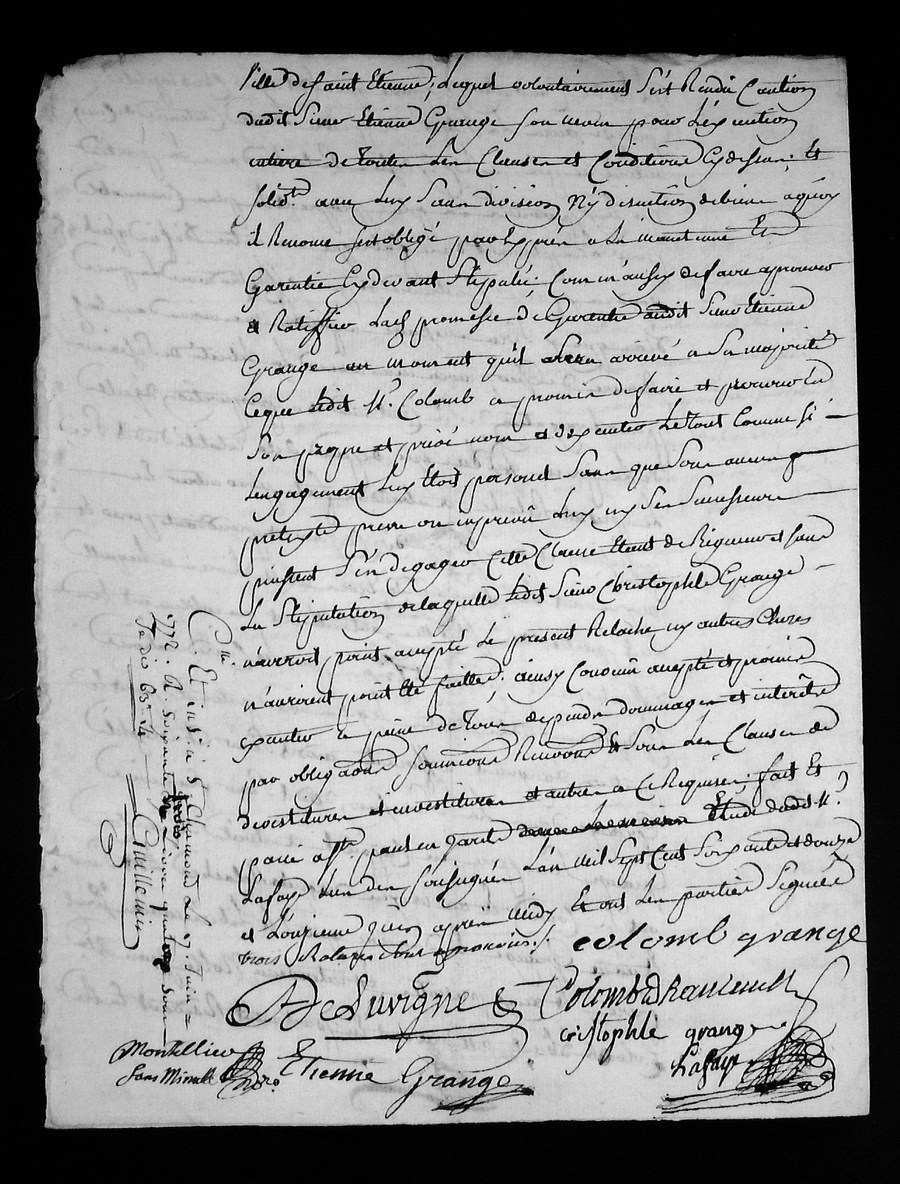 Ville de saint Etienne, Lequel volontairement s'est Rendu Caution
dudit Sieur Etienne Grange son neveu pour L'exécution
entiere de toutes Les Clauses et Conditions Cy dessus; Et
solidt. avec Luy sans division Ny discution de biens aquoy
il Renonce s'est obligé par Exprès a La maintenue Et
Garentie Cy devant Stipulée; Comm'aussy de faire aprouver
& Ratiffier Lad. promesse de Garentie audit Sieur Etienne
Grange au moment qu'il sera arrivé a Sa majorité
Ceque Ledit Sr. Colomb a promis de faire et procurer En
Son propre et privé nom et d'exécuter Le tout Comme si
L'engagement Luy Etoit personel sans que sous aucun
pretexte prevu ou imprevû Luy ny Ses Successeurs
puissent S'en degager Cette Clause Etant de Rigueur et sans
La Stipulation de laquelle Ledit Sieur Christophle Grange
n'auroit point accepté Le present Relaché ny autres Choses
n'auroient point été faittes; ainsy Convenu accepté et promis
exécuter a peine de tous depends dommages et intérêts
par obligaons soumissions Renonons & sous Les Clauses de
devestitures et investitures et autres a Ce Requises; fait Et
passé Etude dudit Me.
Lafay L'un des soussignés L'an Mil Sept Cent Soixante et douze
et L'onzieme Juin après Midy Et ont Les parties Signées
trois Ratures Aprouvées ./.
colomb grange
DeLuvigne Colomb
cristophle grange
Lafay
Montellier
sans Minutte No.re
Etienne Grange
C.lle Et ins. à St. Chamond Le 17. Juin
1772. R. Soixante trois Livres quatorze sous
Guillemin